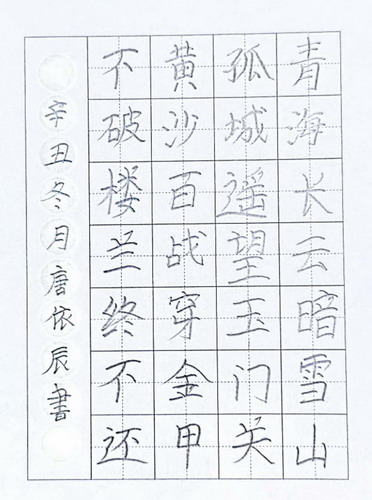 青海长云暗雪山
孤城遥望玉门关
黄沙百战穿金甲
不破楼兰终不还
辛丑冬月唐依辰書